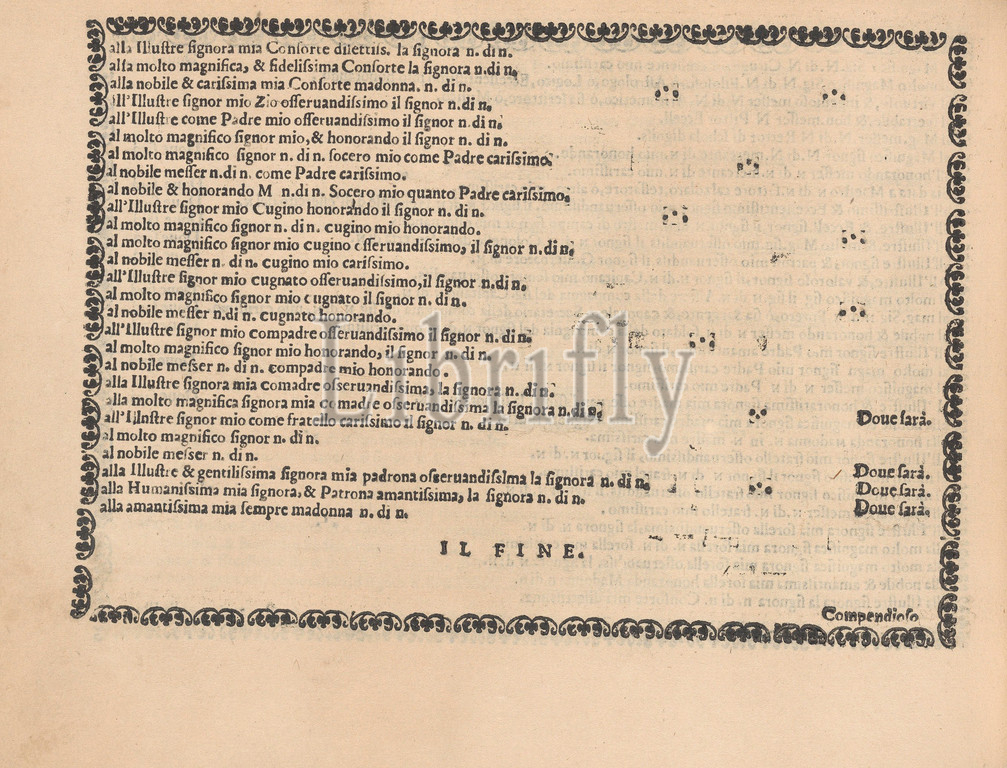 alla Illustre signora mia Consorte dilettiss. la signora n. di n.
alla molto magnifica, & fidelissima Consorte la signora n.di n.
alla nobile & carissima mia Consorte madonna. n. di n.
all'Illustre signor mio Zio osseruandissimo il signor n. di n.
all'Illustre come Padre mio osseruandissimo il signor n. di n.
al molto magnifico signor mio, & honorando il signor n. di n.
al molto magnifico signor n. di n. socero mio come Padre carissimo.
al nobile messer n.di n. come Padre carissimo.
al nobile & honorando M n. di n. Socero mio quanto Padre carissimo.
all'Illustre signor mio Cugino honorando il signor n. di n.
al molto magnifico signor n. di n. cugino mio honorando.
al molto magnifico signor mio cugino osseruandissimo, il signor n. di n.
al nobile messer n. di n. cugino mio carissimo.
all'Illustre signor mio cugnato osseruandissimo, il signor n. di n.
al molto magnifico signor mio cugnato il signor n. di n.
al nobile messer n.di n. cugnato honorando.
all'Illustre signor mio compadre osseruandissimo il signor n. di n.
al molto magnifico signor mio honorando, il signor n. di n.
al nobile messer n. di n. compadre mio honorando.
alla Illustre signora mia comadre osseruandissima, la signora n. di n.
alla molto magnifica signora mia comadre osseruandissima la signora n. di n.
all'Illnstre signor mio come fratello carissimo il signor n. di n. Doue sarà.
al molto magnifico signor n. di n.
al nobile messer n. di n.
alla Illustre & gentilissima signora mia padrona osseruandisslma la signora n. di n. Doue sarà.
alla Humanissima mia signora, & Patrona amantissima, la signora n. di n. Doue sarà.
alla amantissima mia sempre madonna n. di n. Doue sarà.
IL FINE.
Compendioso
Librifly